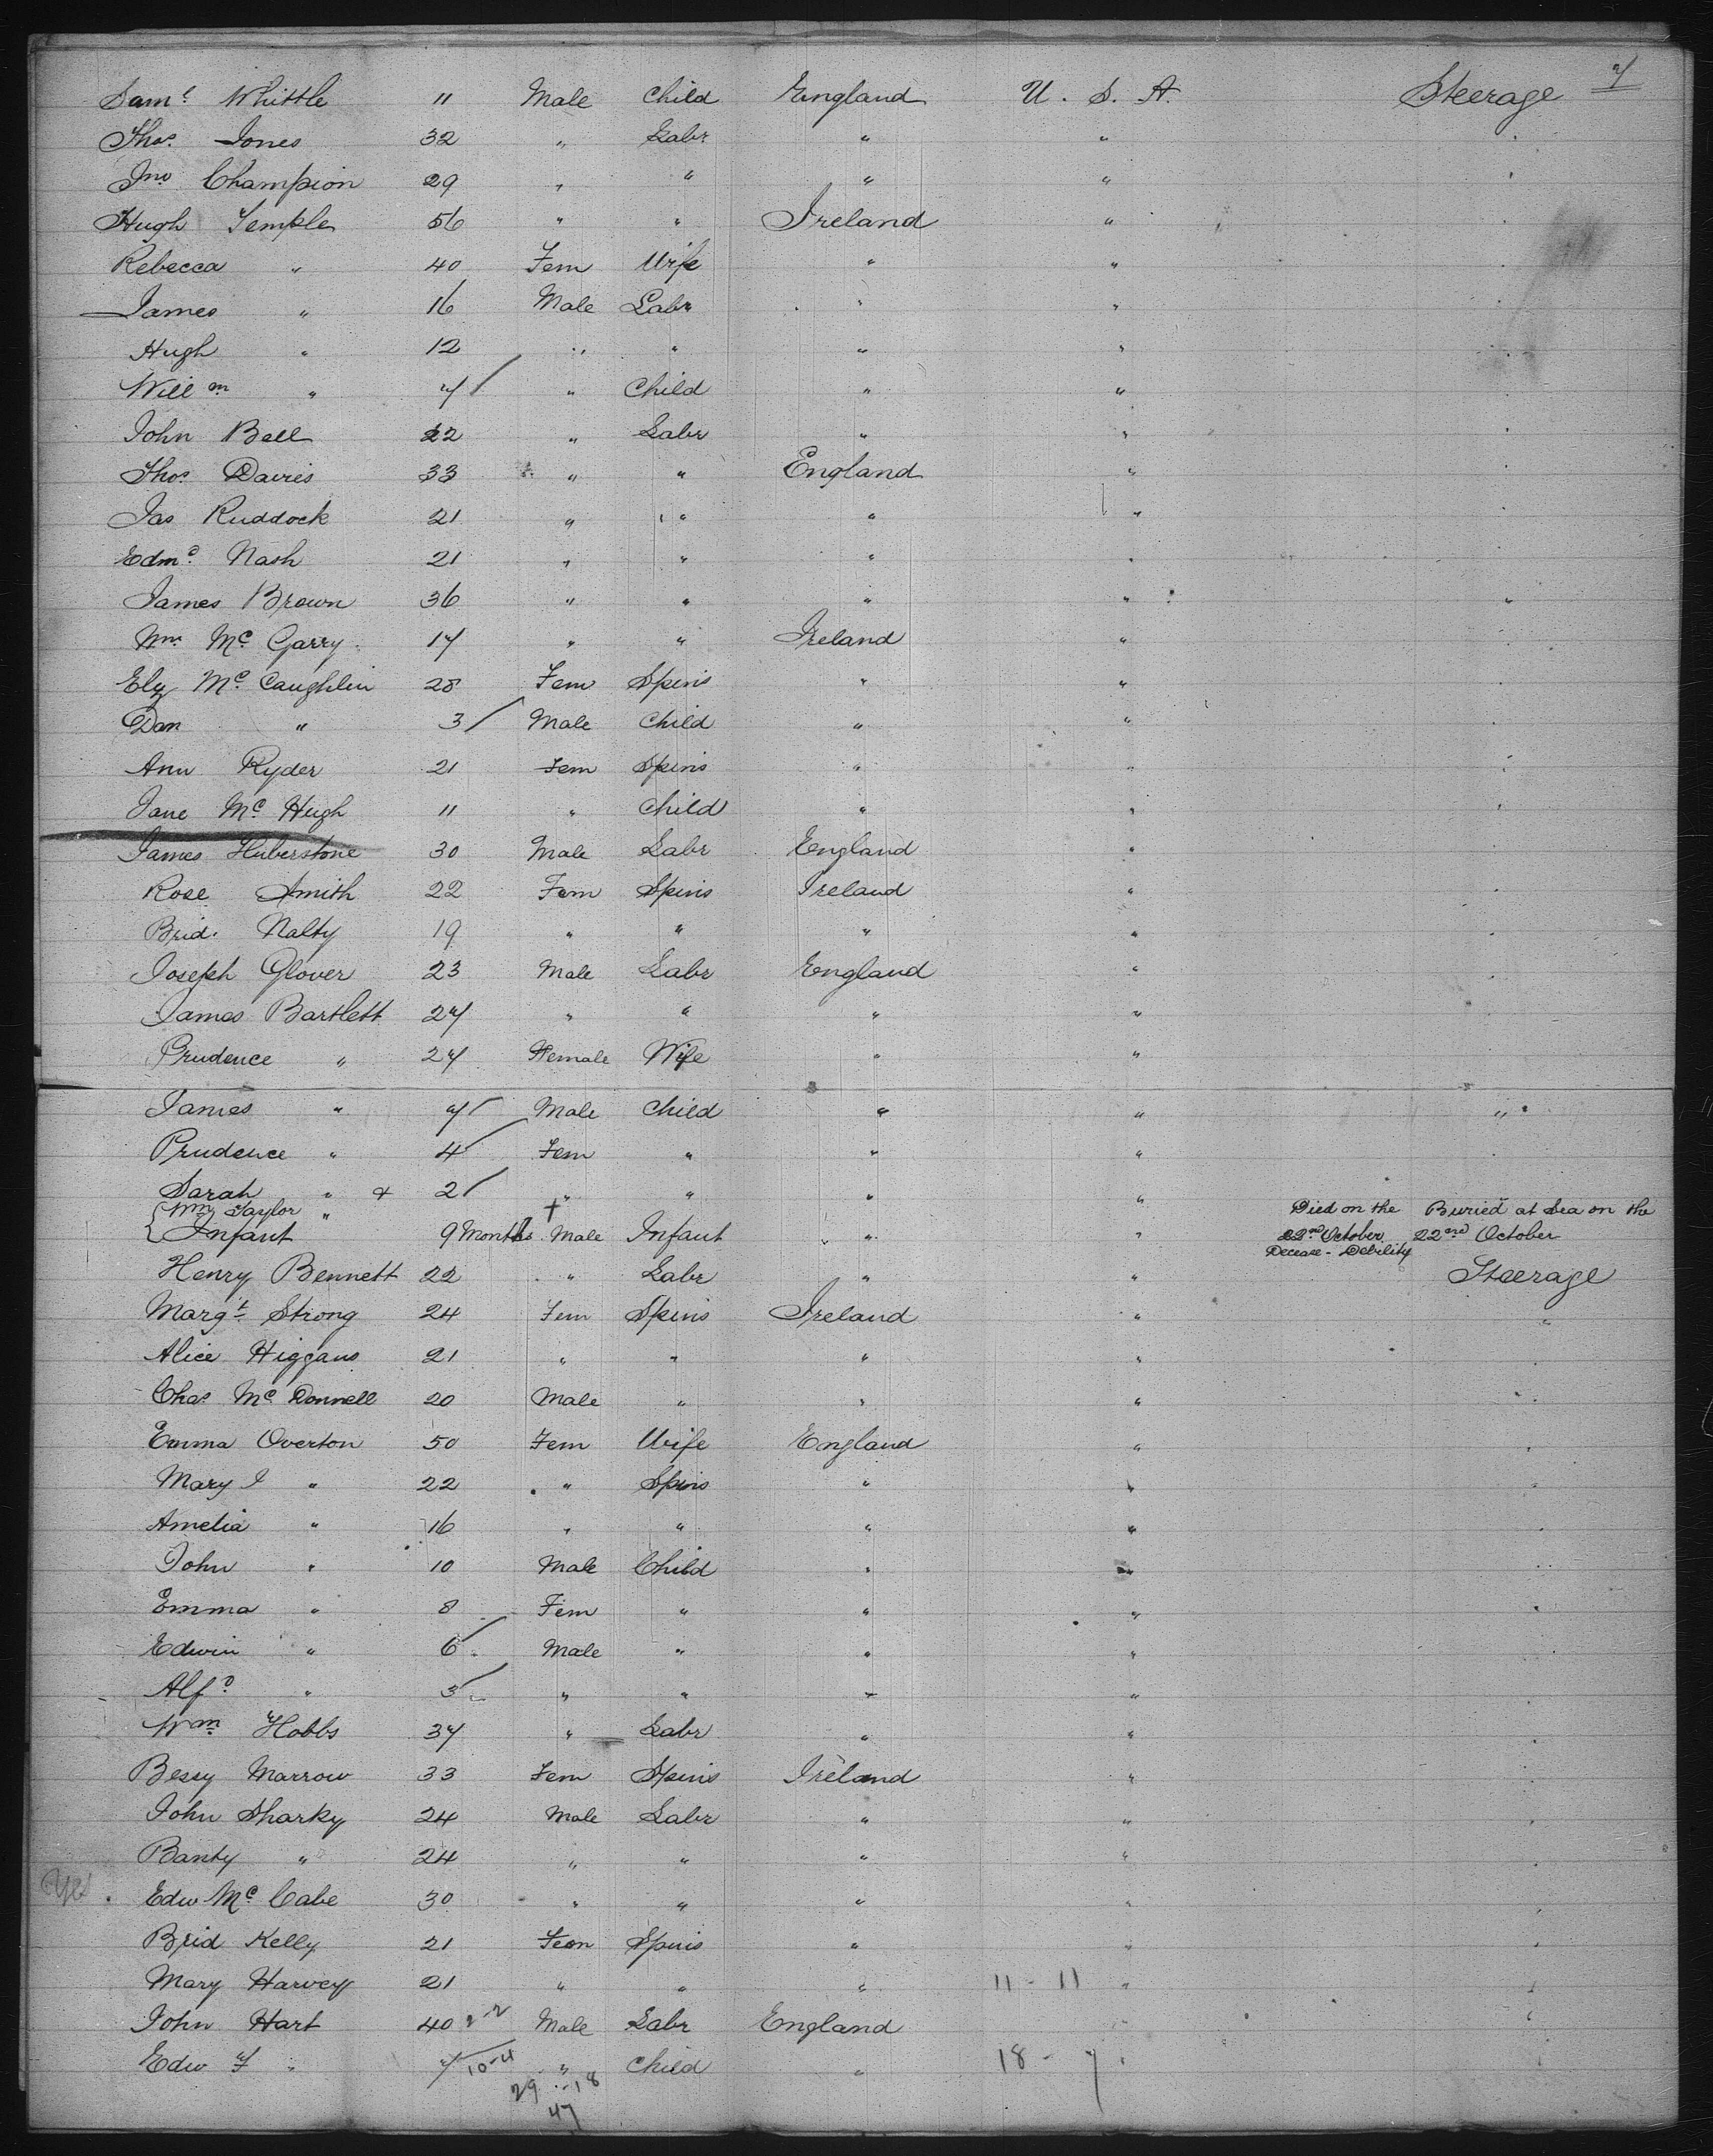 7
Saml Whittle 11 Male Child England U. S. A. Steerage
Thos Jones 32 " Labr " " "
Jno Champion 29 " " " " "
Hugh Temple 56 " " Ireland " "
Rebecca " 40 Fem Wife " " "
James " 16 Male Labr " " "
Hugh " 12 " " " " "
Willm " 7 " Child " " "
John Bell 22 " Labr " " "
Thos Davies 33 " " England " "
Jas Ruddock 21 " " " " "
Edmd Nash 21 " " " " "
James Brown 36 " " " " "
Wm Mc Garry 17 " " Ireland " "
Elz Mc Caughlin 28 Fem Spins " " "
Dan " 3 Male Child " " "
Ann Ryder 21 Fem Spins " " "
Jane Mc Hugh 11 " Child " " "
James Huberstone 30 Male Labr England " "
Rose Smith 22 Fem Spins Ireland " "
Brid. Nalty 19 " " " " "
Joseph Glover 23 Male Labr England " "
James Bartlett 27 " " " " "
Prudence " 27 Female Wife " " "
James " 7 Male Child " " "
Prudence " 4 Fem " " " "
Sarah " & 2 " " " "
Wm Taylor " Died on the Buried at Sea on the
Infant 9 Months Male Infant " " 22nd October 22nd October
Decease - Debility
Henry Bennett 22 " Labr " " Steerage
Margt Strong 24 Fem Spins Ireland " "
Alice Higgans 21 " " " " "
Chas Mc Donnell 20 Male " " " "
Emma Overton 50 Fem Wife England " "
Mary J " 22 " Spins " " "
Amelia " 16 " " " " "
John " 10 Male Child " " "
Emma " 8 Fem " " " "
Edwin " 6 Male " " " "
Alfd " 3 " " " " "
Wm Hobbs 37 " Labr " " "
Bessy Marrow 33 Fem Spins Ireland " "
John Sharky 24 Male Labr " " "
Banty " 24 " " " " "
Yes Edw Mc Cabe 30 " " " " "
Brid Kelly 21 Fem Spins " " "
Mary Harvey 21 " " " 11 - 11 " "
John Hart 40 2-2 Male Labr England " "
Edw F " 7 10-4 " Child " 18 - 7 " "
29 - 18
47